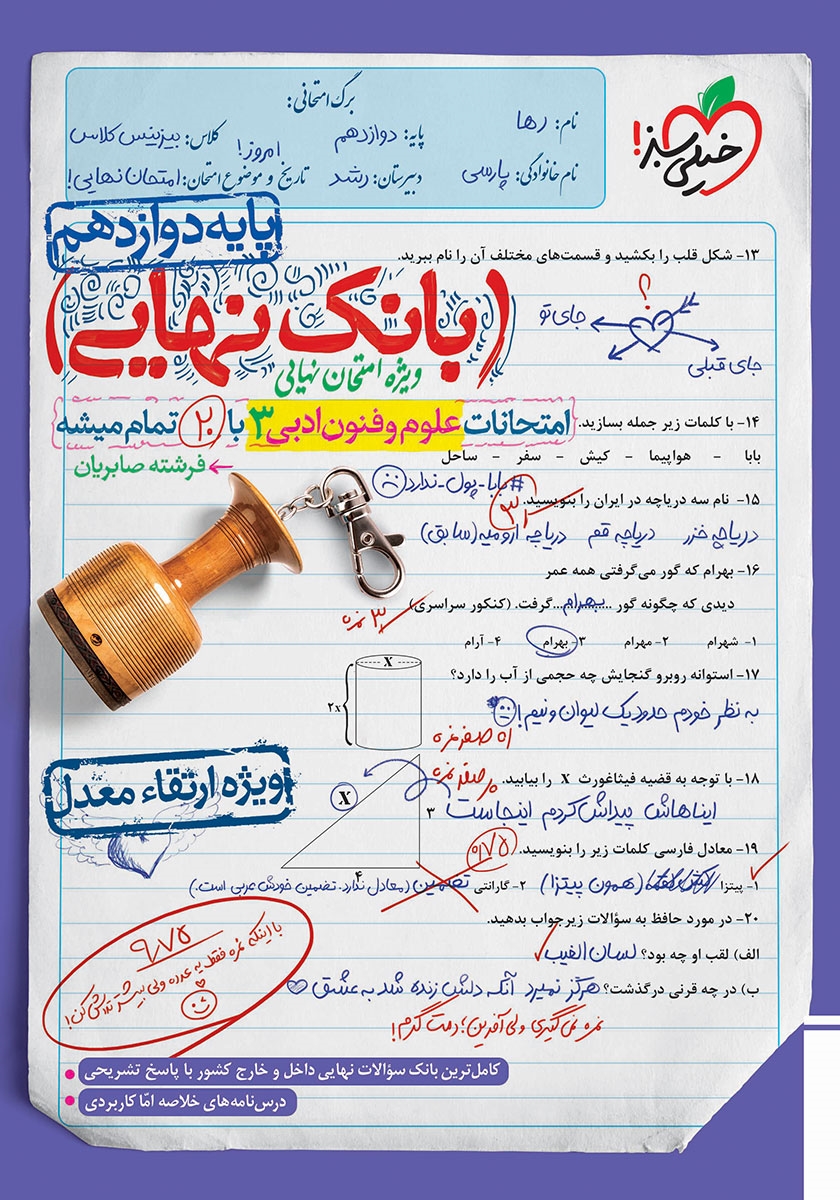 خیلی سبز!
برگ امتحانی:
نام: رها
پایه: دوازدهم
کلاس: بیزینس کلاس
نام خانوادگی: پارسی
دبیرستان: رشد
تاریخ و موضوع امتحان: امتحان نهایی! امروز!
پایه دوازدهم
(بانک نهایی)
ویژه امتحان نهایی
امتحانات علوم و فنون ادبی ۳ با ۲۰ تمام میشه
فرشته صابریان
۱۳- شکل قلب را بکشید و قسمت‌های مختلف آن را نام ببرید.
؟
جای تو
جای قبلی
۱۴- با کلمات زیر جمله بسازید.
بابا - هواپیما - کیش - سفر - ساحل
#بابا-پول-ندارد
۱۵- نام سه دریاچه در ایران را بنویسید.
دریاچه خزر دریاچه قم دریاچه ارومیه (سابق)
۱۶- بهرام که گور می‌گرفتی همه عمر
دیدی که چگونه گور ...بهرام...گرفت. (کنکور سراسری)
۳ نمره
۱- شهرام ۲- مهرام ۳- بهرام ۴- آرام
۱۷- استوانه روبرو گنجایش چه حجمی از آب را دارد؟
X
۲x
به نظر خودم حدود یک لیوان و نیم!
اه صفر نمره
۱۸- با توجه به قضیه فیثاغورث X را بیابید.
صفر نمره
X
۳
۴
ایناهاش پیداش کردم اینجاست
۱۹- معادل فارسی کلمات زیر را بنویسید.
۰/۷۵
۱- پیتزا (همون پیتزا) ۲- گارانتی تضمین (معادل ندارد. تضمین خودش عربی است.)
۲۰- در مورد حافظ به سؤالات زیر جواب بدهید.
الف) لقب او چه بود؟ لسان الغیب
ب) در چه قرنی درگذشت؟ هرگز نمیرد آنکه دلش زنده شد به عشق
نمره نمی‌گیری ولی آفرین؛ دمت گرم!
ویژه ارتقاء معدل
۹/۷۵
با اینکه نمره فقط یه عدده ولی بیشتر تلاش کن!
کامل‌ترین بانک سؤالات نهایی داخل و خارج کشور با پاسخ تشریحی
درس‌نامه‌های خلاصه امّا کاربردی